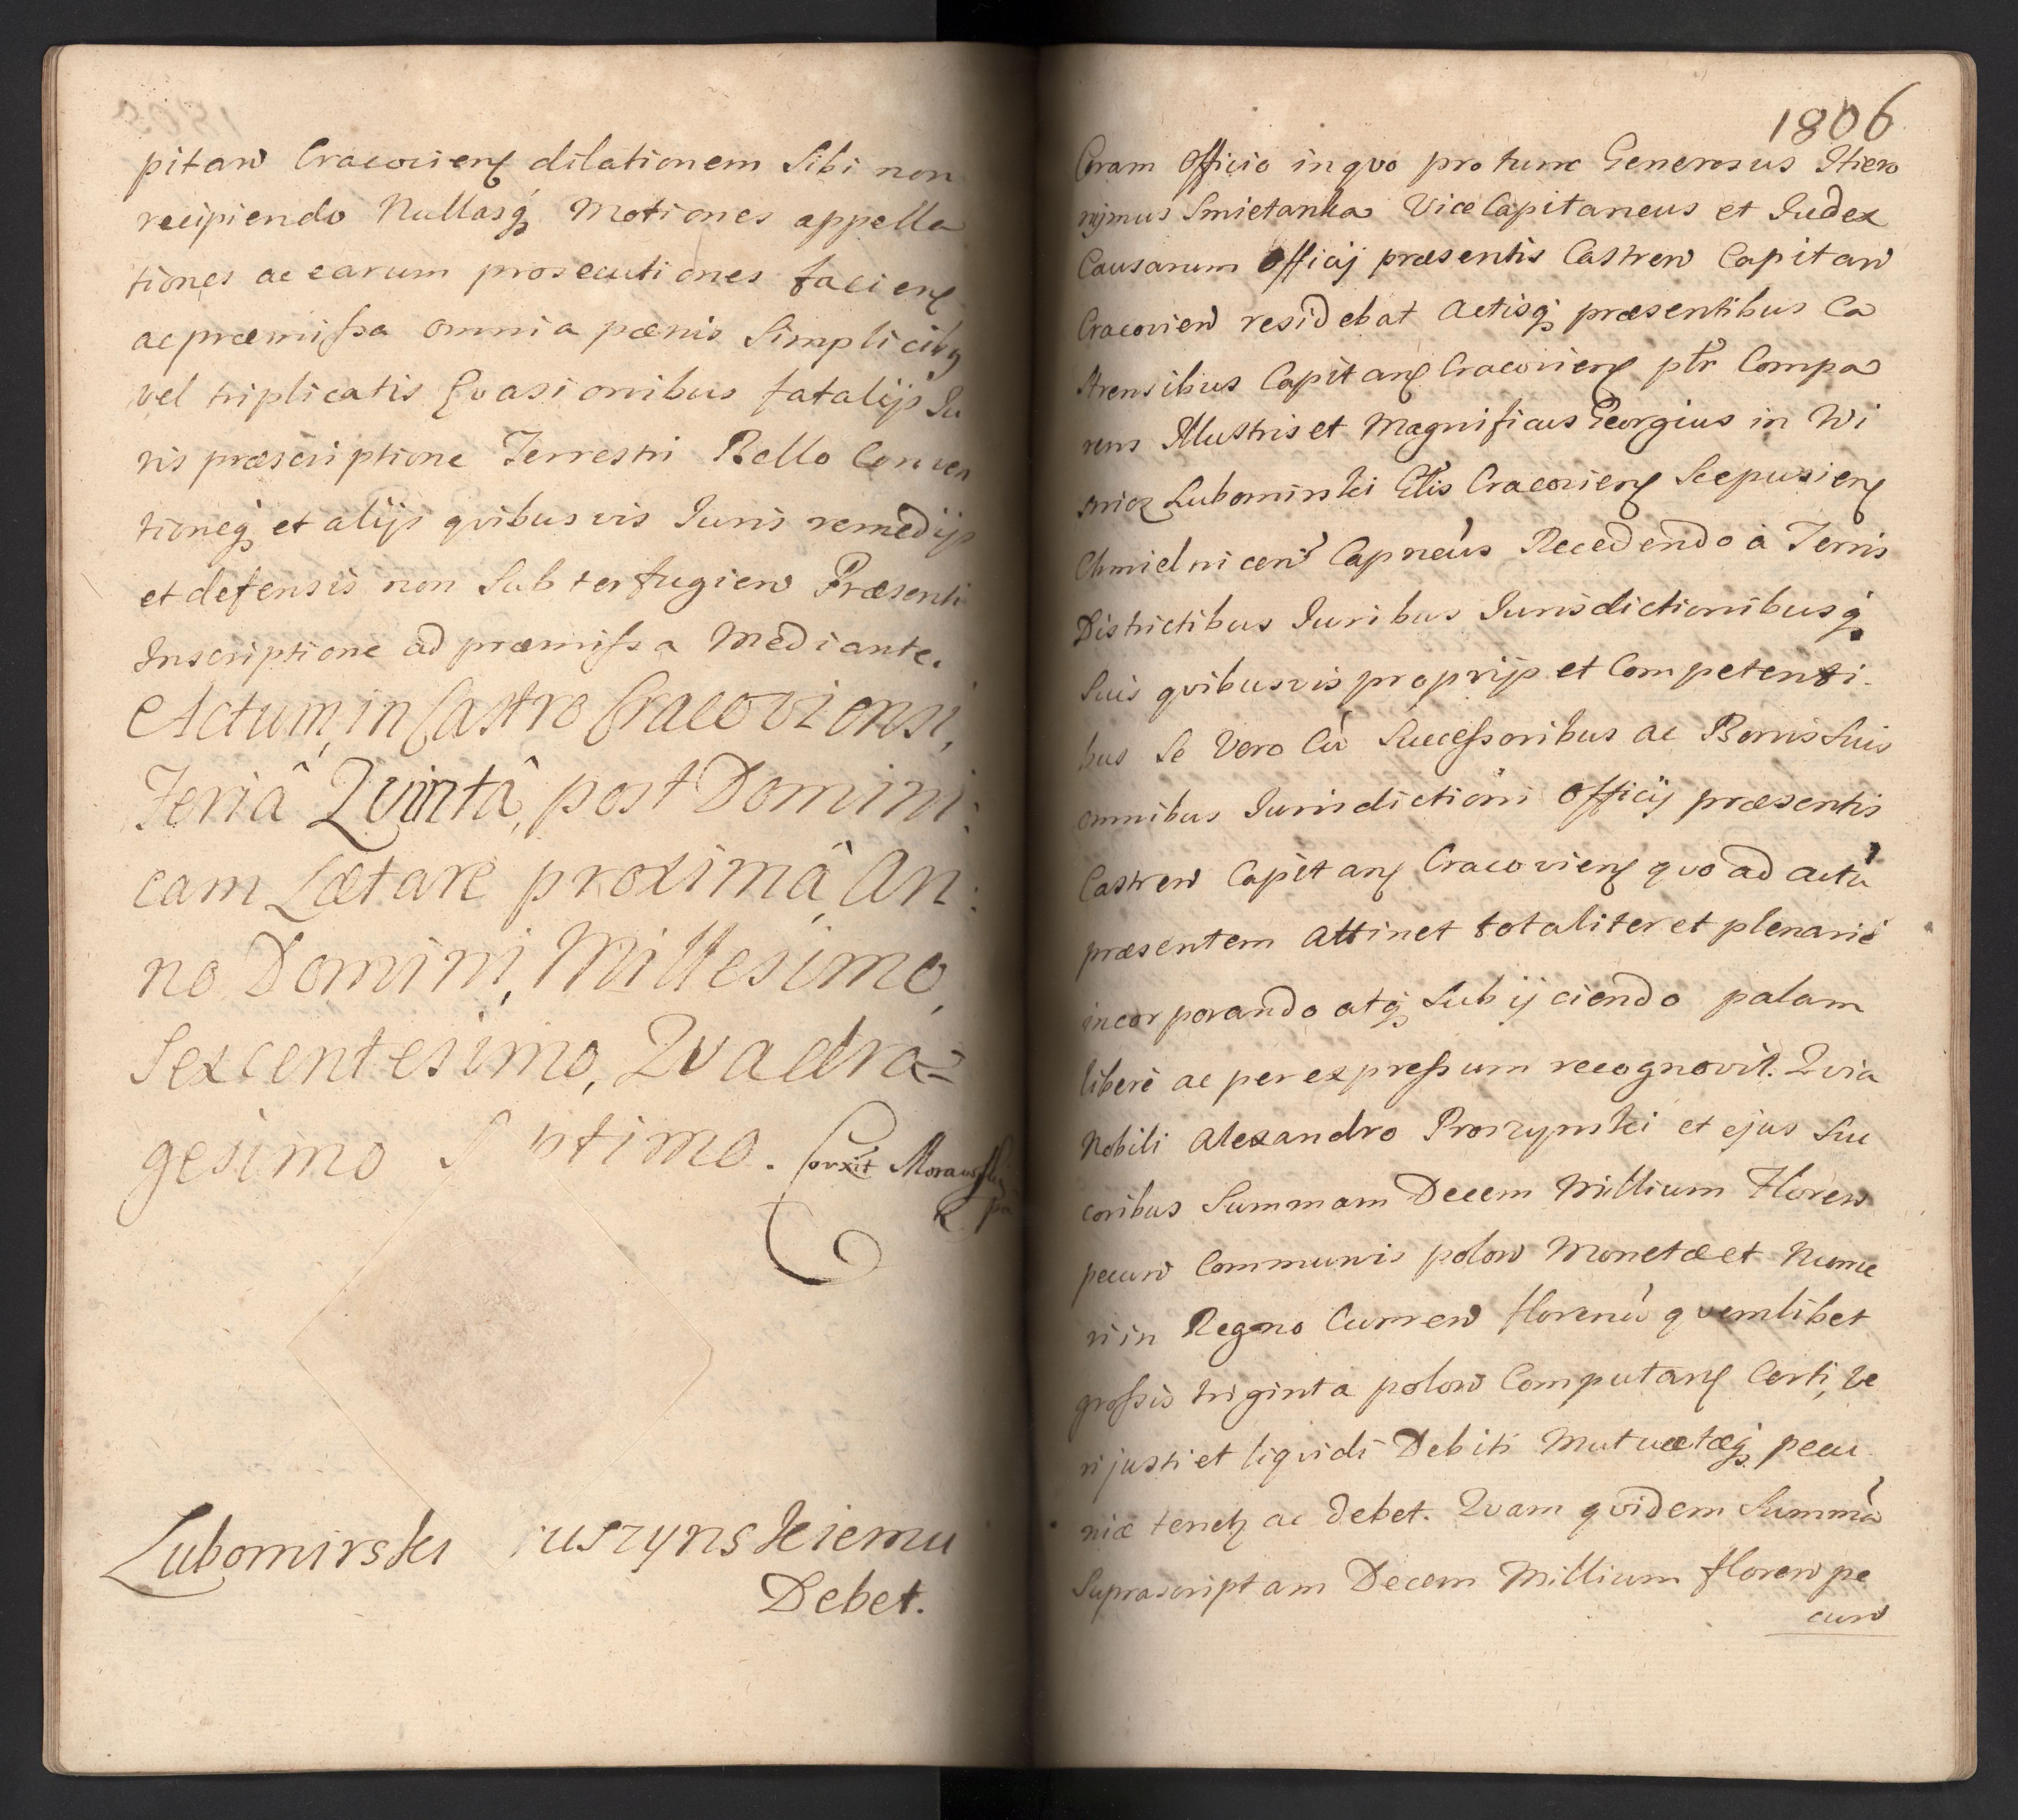 pitan Cracovien dilationem Sibi non
recipiendo Nullasq; Motiones appella
tiones ac earum prosecutiones facien
ac præmissa omnia pænis Simplicibq
vel triplicatis Evasionibus fatalijs Iu
ris præscriptione Terrestri Bello Conven
tioneq; et alijs qvibusvis Iuris remedijs
et defensis non Subterfugien Præsenti
Inscriptione ad præmissa Mediante.
Actum, in Castro Cracoviensi,
Feriâ Qvintâ, post Domini:
cam Lætare proximâ, An:
no Domini, Millesimo,
Sexcentesimo, Qvadra=
gesimo S ptimo. Corxit Morawski
Lubomirski uszynskiemu
Debet.
1806
Coram Officio in qvo pro tunc Generosus Hiero
nymus Smietanka ViceCapitaneus et Iudex
Causarum Officij præsentis Castren Capitan
Cracovien residebat Actisq; præsentibus Ca
strensibus Capitan Cracovien ptr Compa
rens Illustris et Magnificus Georgius in Wi
snicz Lubomirski Cracovien Scepusien
Chmielnicen Capneus Recedendo à Terris
Districtibus Iuribus Iurisdictionibusq;
Suis qvibusvis proprijs et Competenti.
bus Se Vero Cù Successoribus ac Bonis Suis
omnibus Iurisdictioni Officij præsentis
Castren Capitan Cracovien qvo ad actù
præsentem attinet totaliter et plenariè
incorporando atq; Subijciendo palam
liberè ac per expressum recognovit. Qvia
Nobili Alexandro Proszynski et ejus Suc
coribus Summam Decem Millium Floren
pecun Communis polon Monetæ et Nume
ri in Regno Curren florenù qvemlibet
grossis triginta polon Computan Certi, Ve
ri justi et liqvidi Debiti Mutuætæq; pecu
niæ tenetz ac Debet. Qvam qvidem Summà
Suprascriptam Decem Millium floren pe
cun